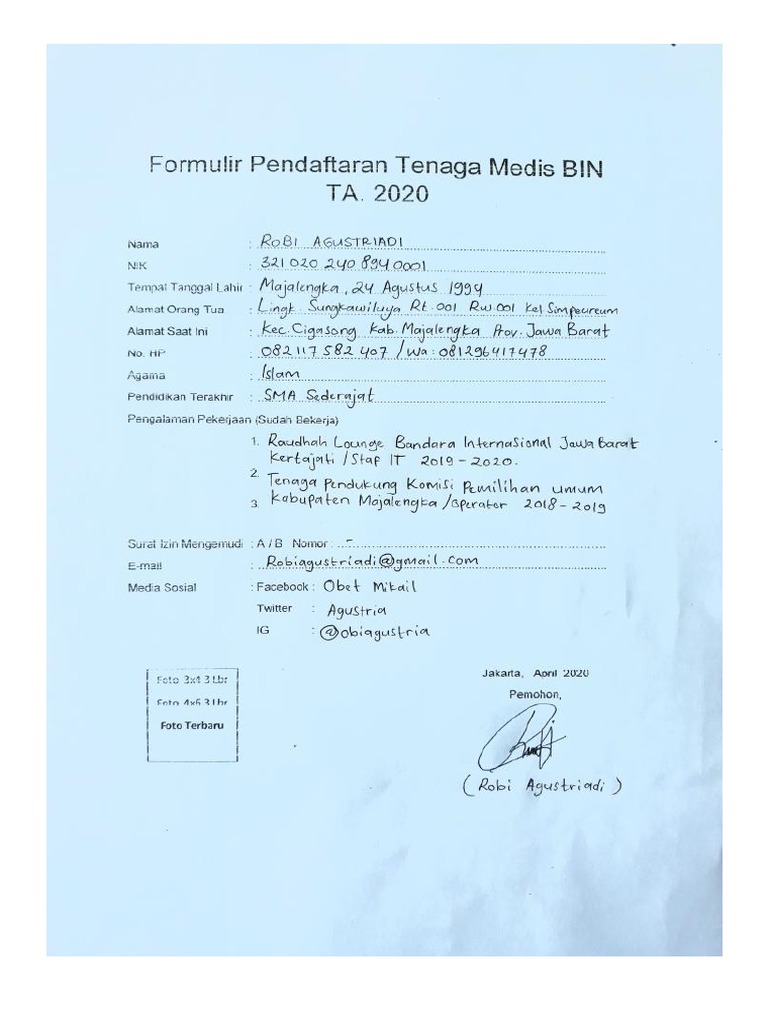 Formulir Pendaftaran Tenaga Medis BIN
TA. 2020
Nama : ROBI AGUSTRIADI
NIK : 321 020 240 894 0001
Tempat Tanggal Lahir : Majalengka, 24 Agustus 1994
Alamat Orang Tua : Lingk. Sungkawiluya Rt.001 Rw.001 Kel Simpeureum
Alamat Saat Ini : Kec. Cigasong Kab. Majalengka Prov. Jawa Barat
No. HP : 082 117 582 407 / Wa: 081296417478
Agama : Islam
Pendidikan Terakhir : SMA Sederajat
Pengalaman Pekerjaan (Sudah Bekerja)
1. Raudhah Lounge Bandara Internasional Jawa Barat
Kertajati / Staf IT 2019 - 2020.
2. Tenaga Pendukung Komisi Pemilihan umum
3. Kabupaten Majalengka / Operator 2018 - 2019
Surat Izin Mengemudi : A / B Nomor : -
E-mail : Robiagustriadi@gmail.com
Media Sosial : Facebook : Obet Mikail
Twitter : Agustria
IG : @obiagustria
Foto 3x4 3 Lbr
Foto 4x6 3 Lbr
Foto Terbaru
Jakarta, April 2020
Pemohon,
( Robi Agustriadi )